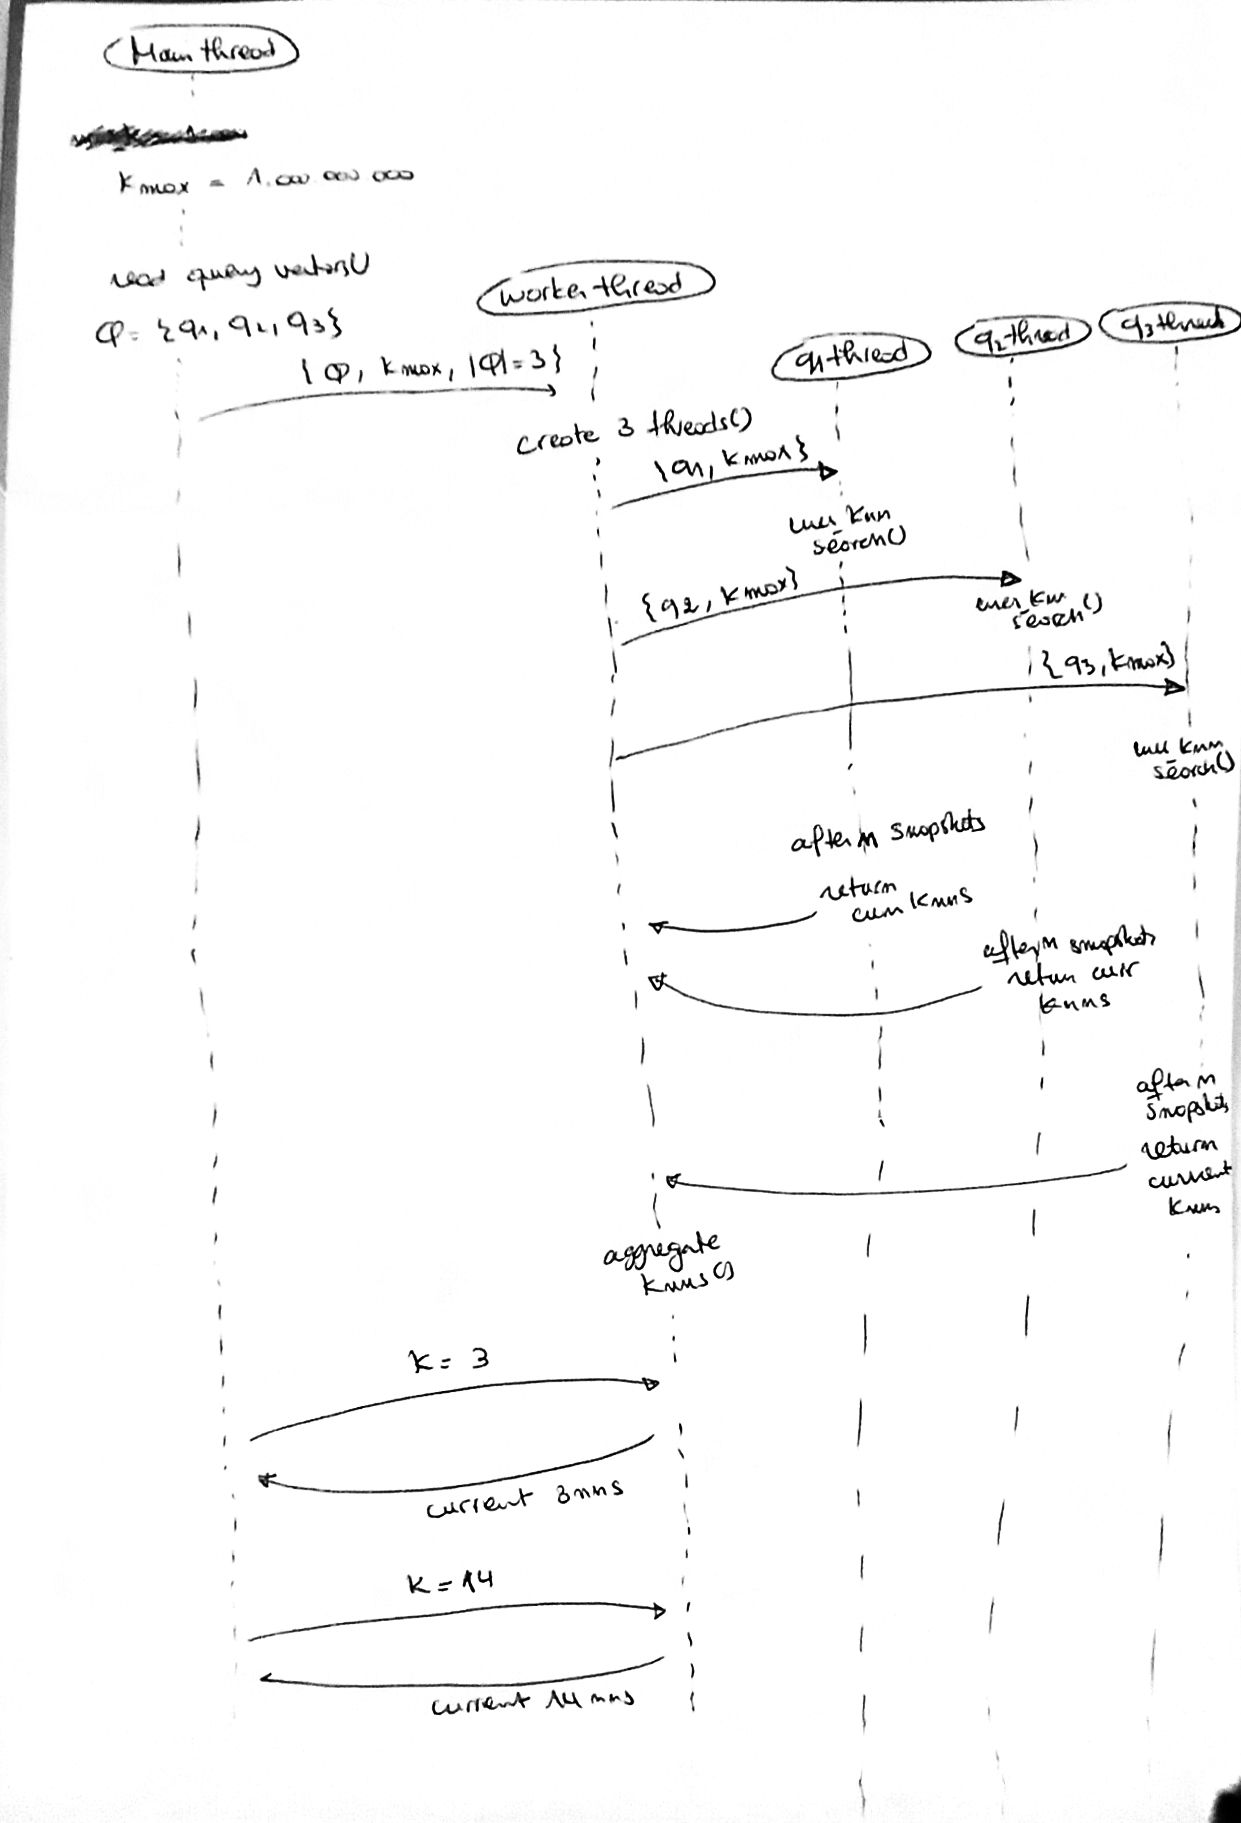 Main thread
kmax = 1.000 000 000
read query vectors()
Q = {q1, q2, q3}
worker thread
q1 thread
q2 thread
q3 thread
{Q, kmax, |Q|=3}
create 3 threads()
{q1, kmax}
knn
search()
{q2, kmax}
search()
{q3, kmax}
knn
search()
after n snapshots
return
curr knns
after n snapshots
return curr
knns
after n
snapshots
return
current
knns
aggregate
knns()
k = 3
current 3nns
k = 14
current 14 nns